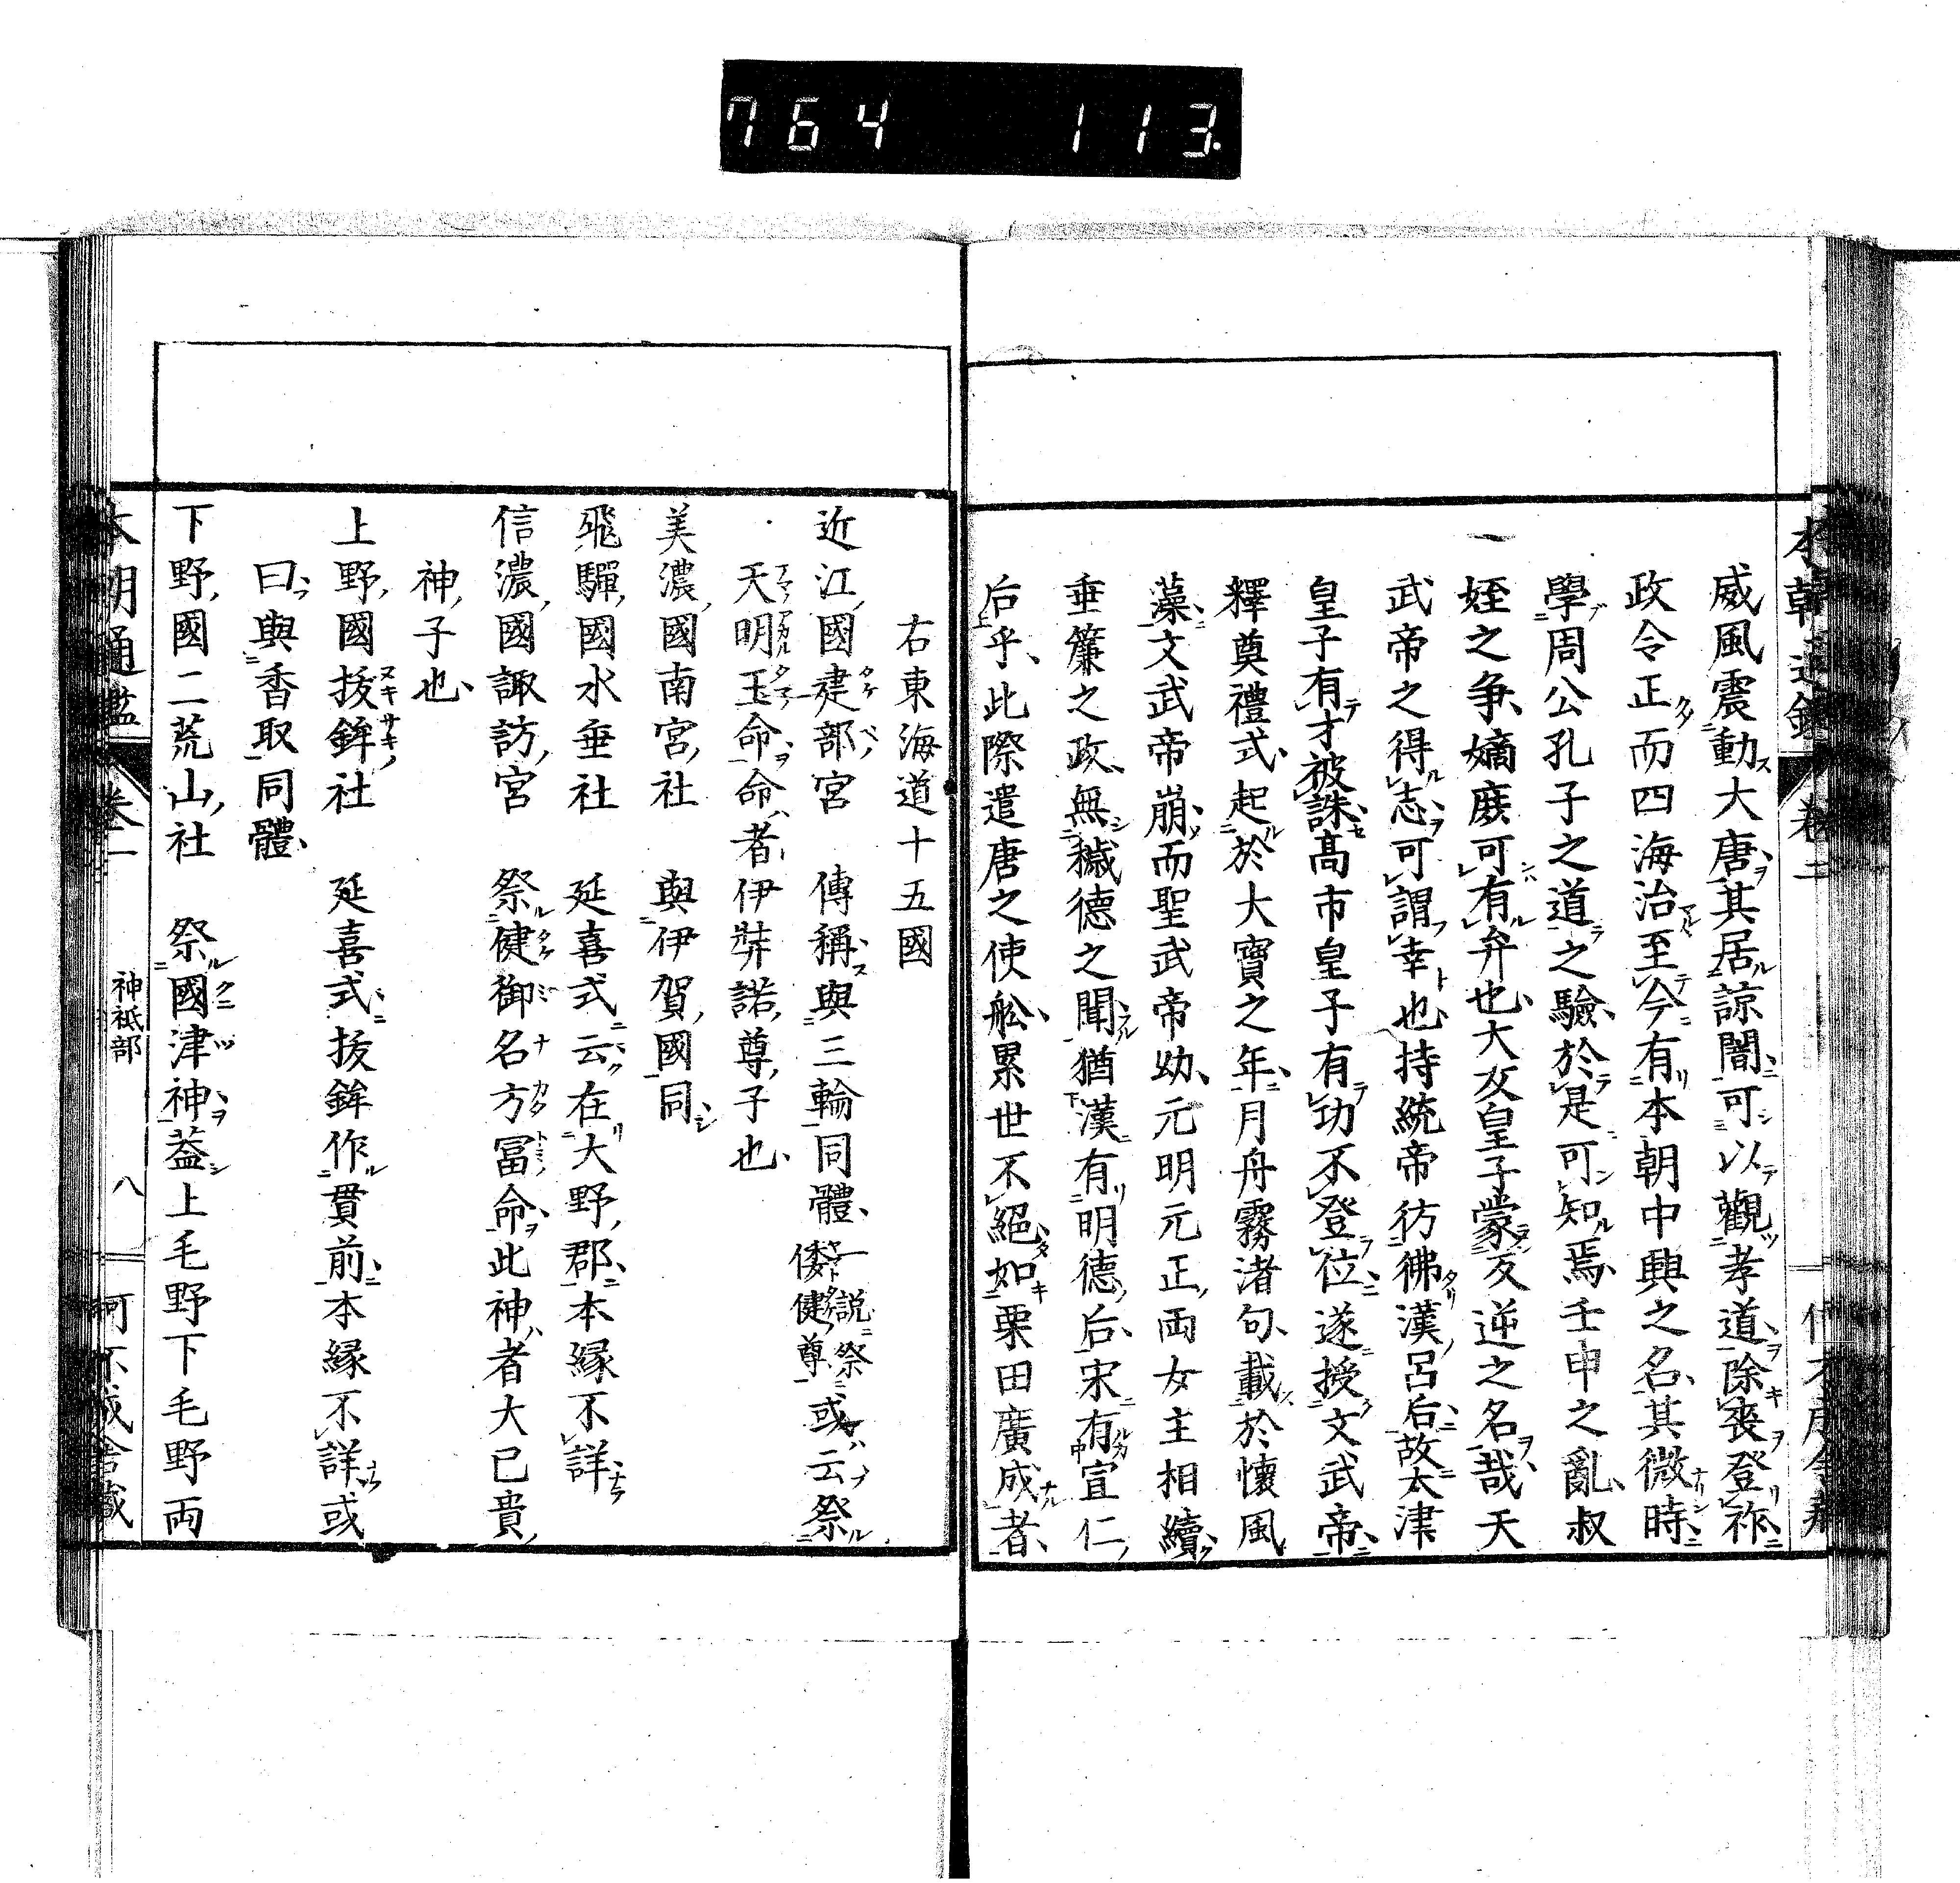 764 113.
本朝通鑑 卷二
威風震動大唐其居諒闇可以觀孝道除喪登祚
政令正而四海治至今有本朝中興之名其微時
學周公孔子之道之驗於是可知焉壬申之亂叔
姪之爭嫡庶可有弁也大友皇子蒙反逆之名哉天
武帝之得志可謂幸也持統帝彷彿漢呂后故大津
皇子有才被誅髙市皇子有功不登位遂授文武帝
釋奠禮式起於大寶之年月舟霧渚句載於懷風
藻文武帝崩而聖武帝幼元明元正両女主相續
垂簾之政無穢德之聞猶漢有明德后宋有宣仁
后乎此際遣唐之使舩累世不絕如粟田廣成者
右東海道十五國
近江國建部宮 傳稱與三輪同體一説祭倭健尊或云祭
天明玉命命者伊弉諾尊子也
美濃國南宮社 與伊賀國同
飛驒國水垂社 延喜式云在大野郡本縁不詳
信濃國諏訪宮 祭健御名方冨命此神者大已貴
神子也
上野國拔鉾社 延喜式拔鉾作貫前本縁不詳或
曰與香取同體
下野國二荒山社 祭國津神葢上毛野下毛野両
本朝通鑑 卷二 神祇部 八